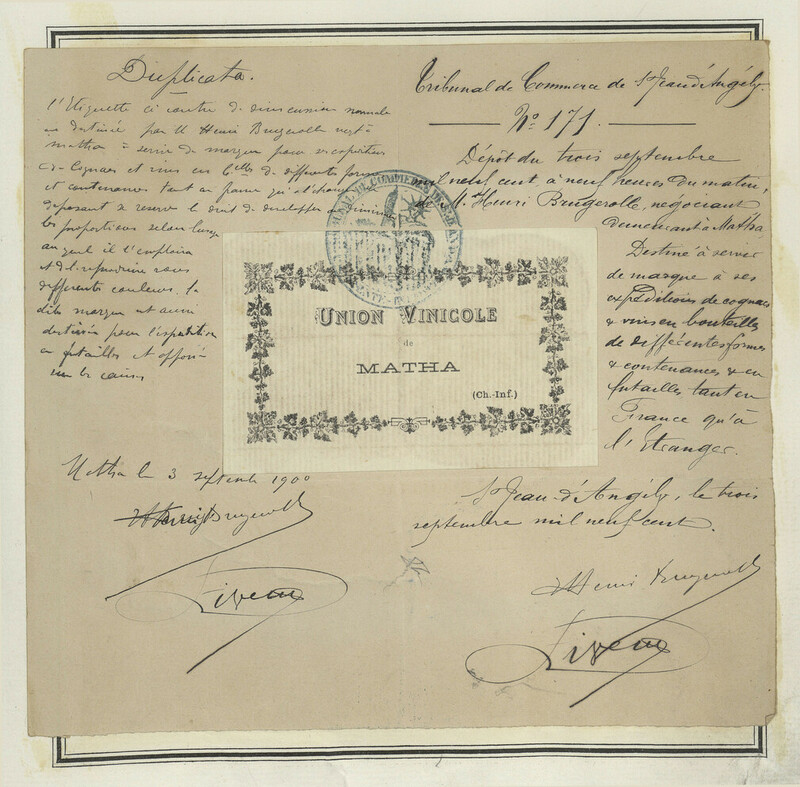 Duplicata.
l'Etiquette ci contre de dimension normale
est destinée par M Henri Brugerolle negt à
Matha à servir de marque pour ses expéditions
de Cognacs et vins en Blles de differentes formes
et contenances tant en france qu'a l'étranger
deposant se reserve le droit de developper ou diminuer
les proportions selon l'usage
auquel il l'emploiera
et de la reproduire sous
differentes couleurs. la
dite marque est aussi
destinée pour l'expedition
en futailles et apposée
sur les caisses
Matha le 3 septembre 1900
Henri Brugerolle
Tribunal de Commerce de St Jean d'Angély.
No 171.
Dépôt du trois septembre
mil neuf cent, à neuf heures du matin,
de M. Henri Brugerolle, négociant
demeurant à Matha.
Destiné à servir
de marque à ses
expéditions de cognacs
& vins en bouteilles
de différentes formes
& contenances & en
futailles tant en
France qu'à
l'Etranger.
St Jean-d'Angély, le trois
septembre mil neuf cent.
Henri Brugerolle
TRIBUNAL DE COMMERCE
UNION VINICOLE
de
MATHA
(Ch.-Inf.)